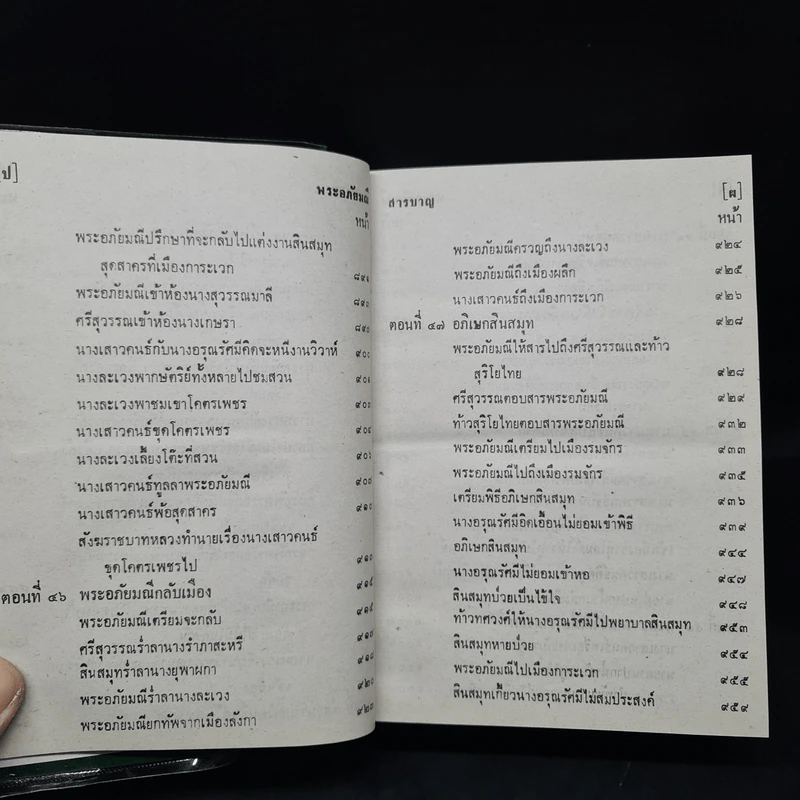 [ป]
พระอภัยมณี
หน้า
พระอภัยมณีปรึกษาที่จะกลับไปแต่งงานสินสมุท
สุดสาครที่เมืองการะเวก
พระอภัยมณีเข้าห้องนางสุวรรณมาลี
ศรีสุวรรณเข้าห้องนางเกษรา
นางเสาวคนธ์กับนางอรุณรัศมีคิดจะหนีงานวิวาห์ ๙๐๐
นางละเวงพากษัตริย์ทั้งหลายไปชมสวน
นางละเวงพาชมเขาโคตรเพชร
นางเสาวคนธ์ขุดโคตรเพชร ๙๐๔
นางละเวงเลี้ยงโต๊ะที่สวน ๙๐๖
นางเสาวคนธ์ทูลลาพระอภัยมณี
นางเสาวคนธ์พ้อสุดสาคร ๙๑๐
สังฆราชบาทหลวงทำนายเรื่องนางเสาวคนธ์
ขุดโคตรเพชรไป ๙๑๐
ตอนที่ ๔๖ พระอภัยมณีกลับเมือง
พระอภัยมณีเตรียมจะกลับ
ศรีสุวรรณร่ำลานางรำภาสะหรี
สินสมุทร่ำลานางยุพาผกา
พระอภัยมณีร่ำลานางละเวง
พระอภัยมณียกทัพจากเมืองลังกา
สารบาญ
[ผ]
หน้า
พระอภัยมณีครวญถึงนางละเวง ๙๒๔
พระอภัยมณีถึงเมืองผลึก ๙๒๕
นางเสาวคนธ์ถึงเมืองการะเวก ๙๒๖
ตอนที่ ๔๗ อภิเษกสินสมุท ๙๒๘
พระอภัยมณีให้สารไปถึงศรีสุวรรณและท้าว
สุริโยไทย ๙๒๘
ศรีสุวรรณตอบสารพระอภัยมณี ๙๒๙
ท้าวสุริโยไทยตอบสารพระอภัยมณี ๙๓๒
พระอภัยมณีเตรียมไปเมืองรมจักร ๙๓๓
พระอภัยมณีไปถึงเมืองรมจักร ๙๓๕
เตรียมพิธีอภิเษกสินสมุท ๙๓๖
นางอรุณรัศมีอิดเอื้อนไม่ยอมเข้าพิธี ๙๓๙
อภิเษกสินสมุท ๙๔๔
นางอรุณรัศมีไม่ยอมเข้าหอ ๙๔๗
สินสมุทป่วยเป็นไข้ใจ ๙๔๘
ท้าวทศวงศ์ให้นางอรุณรัศมีไปพยาบาลสินสมุท ๙๕๓
สินสมุทหายป่วย ๙๕๔
พระอภัยมณีไปเมืองการะเวก ๙๕๕
สินสมุทเกี้ยวนางอรุณรัศมีไม่สมประสงค์ ๙๕๙